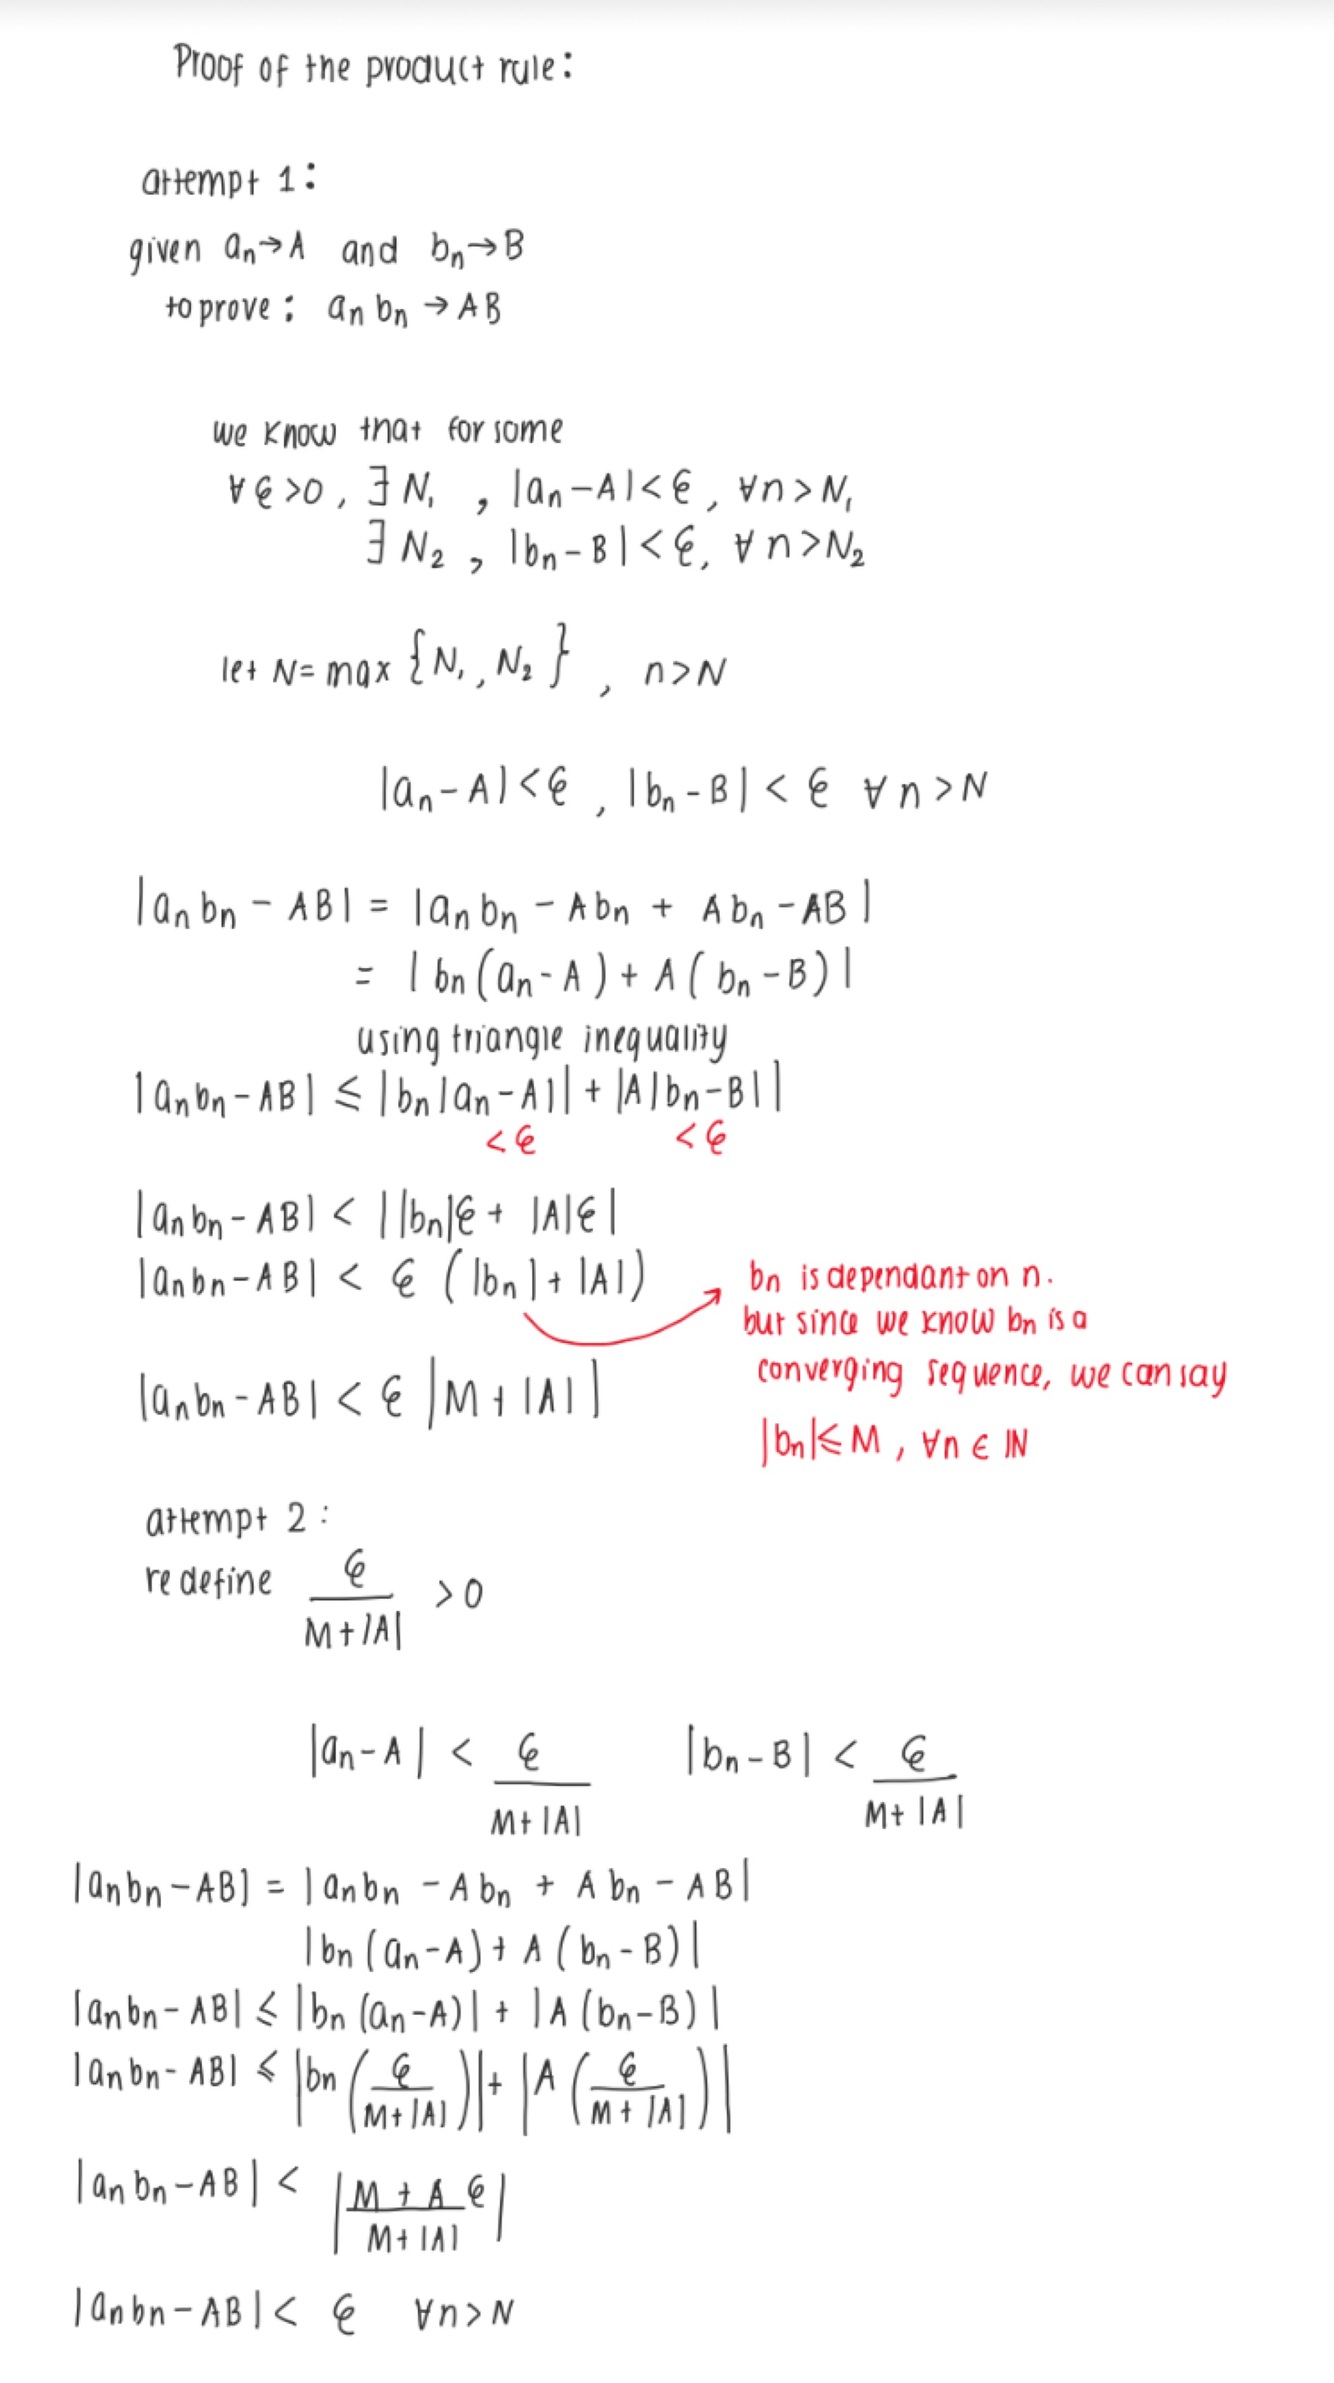 Proof of the product rule:
attempt 1:
given aₙ→A and bₙ→B
to prove: aₙ bₙ → AB
we know that for some
∀ ϵ >0, ∃ N₁ , |aₙ-A|<ϵ, ∀n>N₁
∃ N₂ , |bₙ-B|<ϵ, ∀n>N₂
let N= max {N₁, N₂} , n>N
|aₙ-A|<ϵ , |bₙ-B| < ϵ ∀n>N
|aₙ bₙ - AB| = |aₙ bₙ - Abₙ + Abₙ - AB|
= |bₙ(aₙ-A) + A(bₙ-B)|
using triangle inequality
|aₙbₙ-AB| ≤ |bₙ|aₙ-A|| + |A|bₙ-B||
<ϵ <ϵ
|aₙbₙ-AB| < ||bₙ|ϵ + |A|ϵ|
|aₙbₙ-AB| < ϵ (|bₙ|+|A|)
bₙ is dependant on n.
but since we know bₙ is a
converging sequence, we can say
|bₙ|≤M, ∀n ∈ ℕ
|aₙbₙ-AB| < ϵ |M+|A||
attempt 2:
redefine ϵ/(M+|A|) >0
|aₙ-A| < ϵ/(M+|A|) |bₙ-B| < ϵ/(M+|A|)
|aₙbₙ-AB| = |aₙbₙ - Abₙ + Abₙ - AB|
|bₙ(aₙ-A) + A(bₙ-B)|
|aₙbₙ-AB| ≤ |bₙ(aₙ-A)| + |A(bₙ-B)|
|aₙbₙ-AB| ≤ |bₙ(ϵ/(M+|A|))| + |A(ϵ/(M+|A|))|
|aₙbₙ-AB| < |(M+A)/(M+|A|) ϵ|
|aₙbₙ-AB| < ϵ ∀n>N